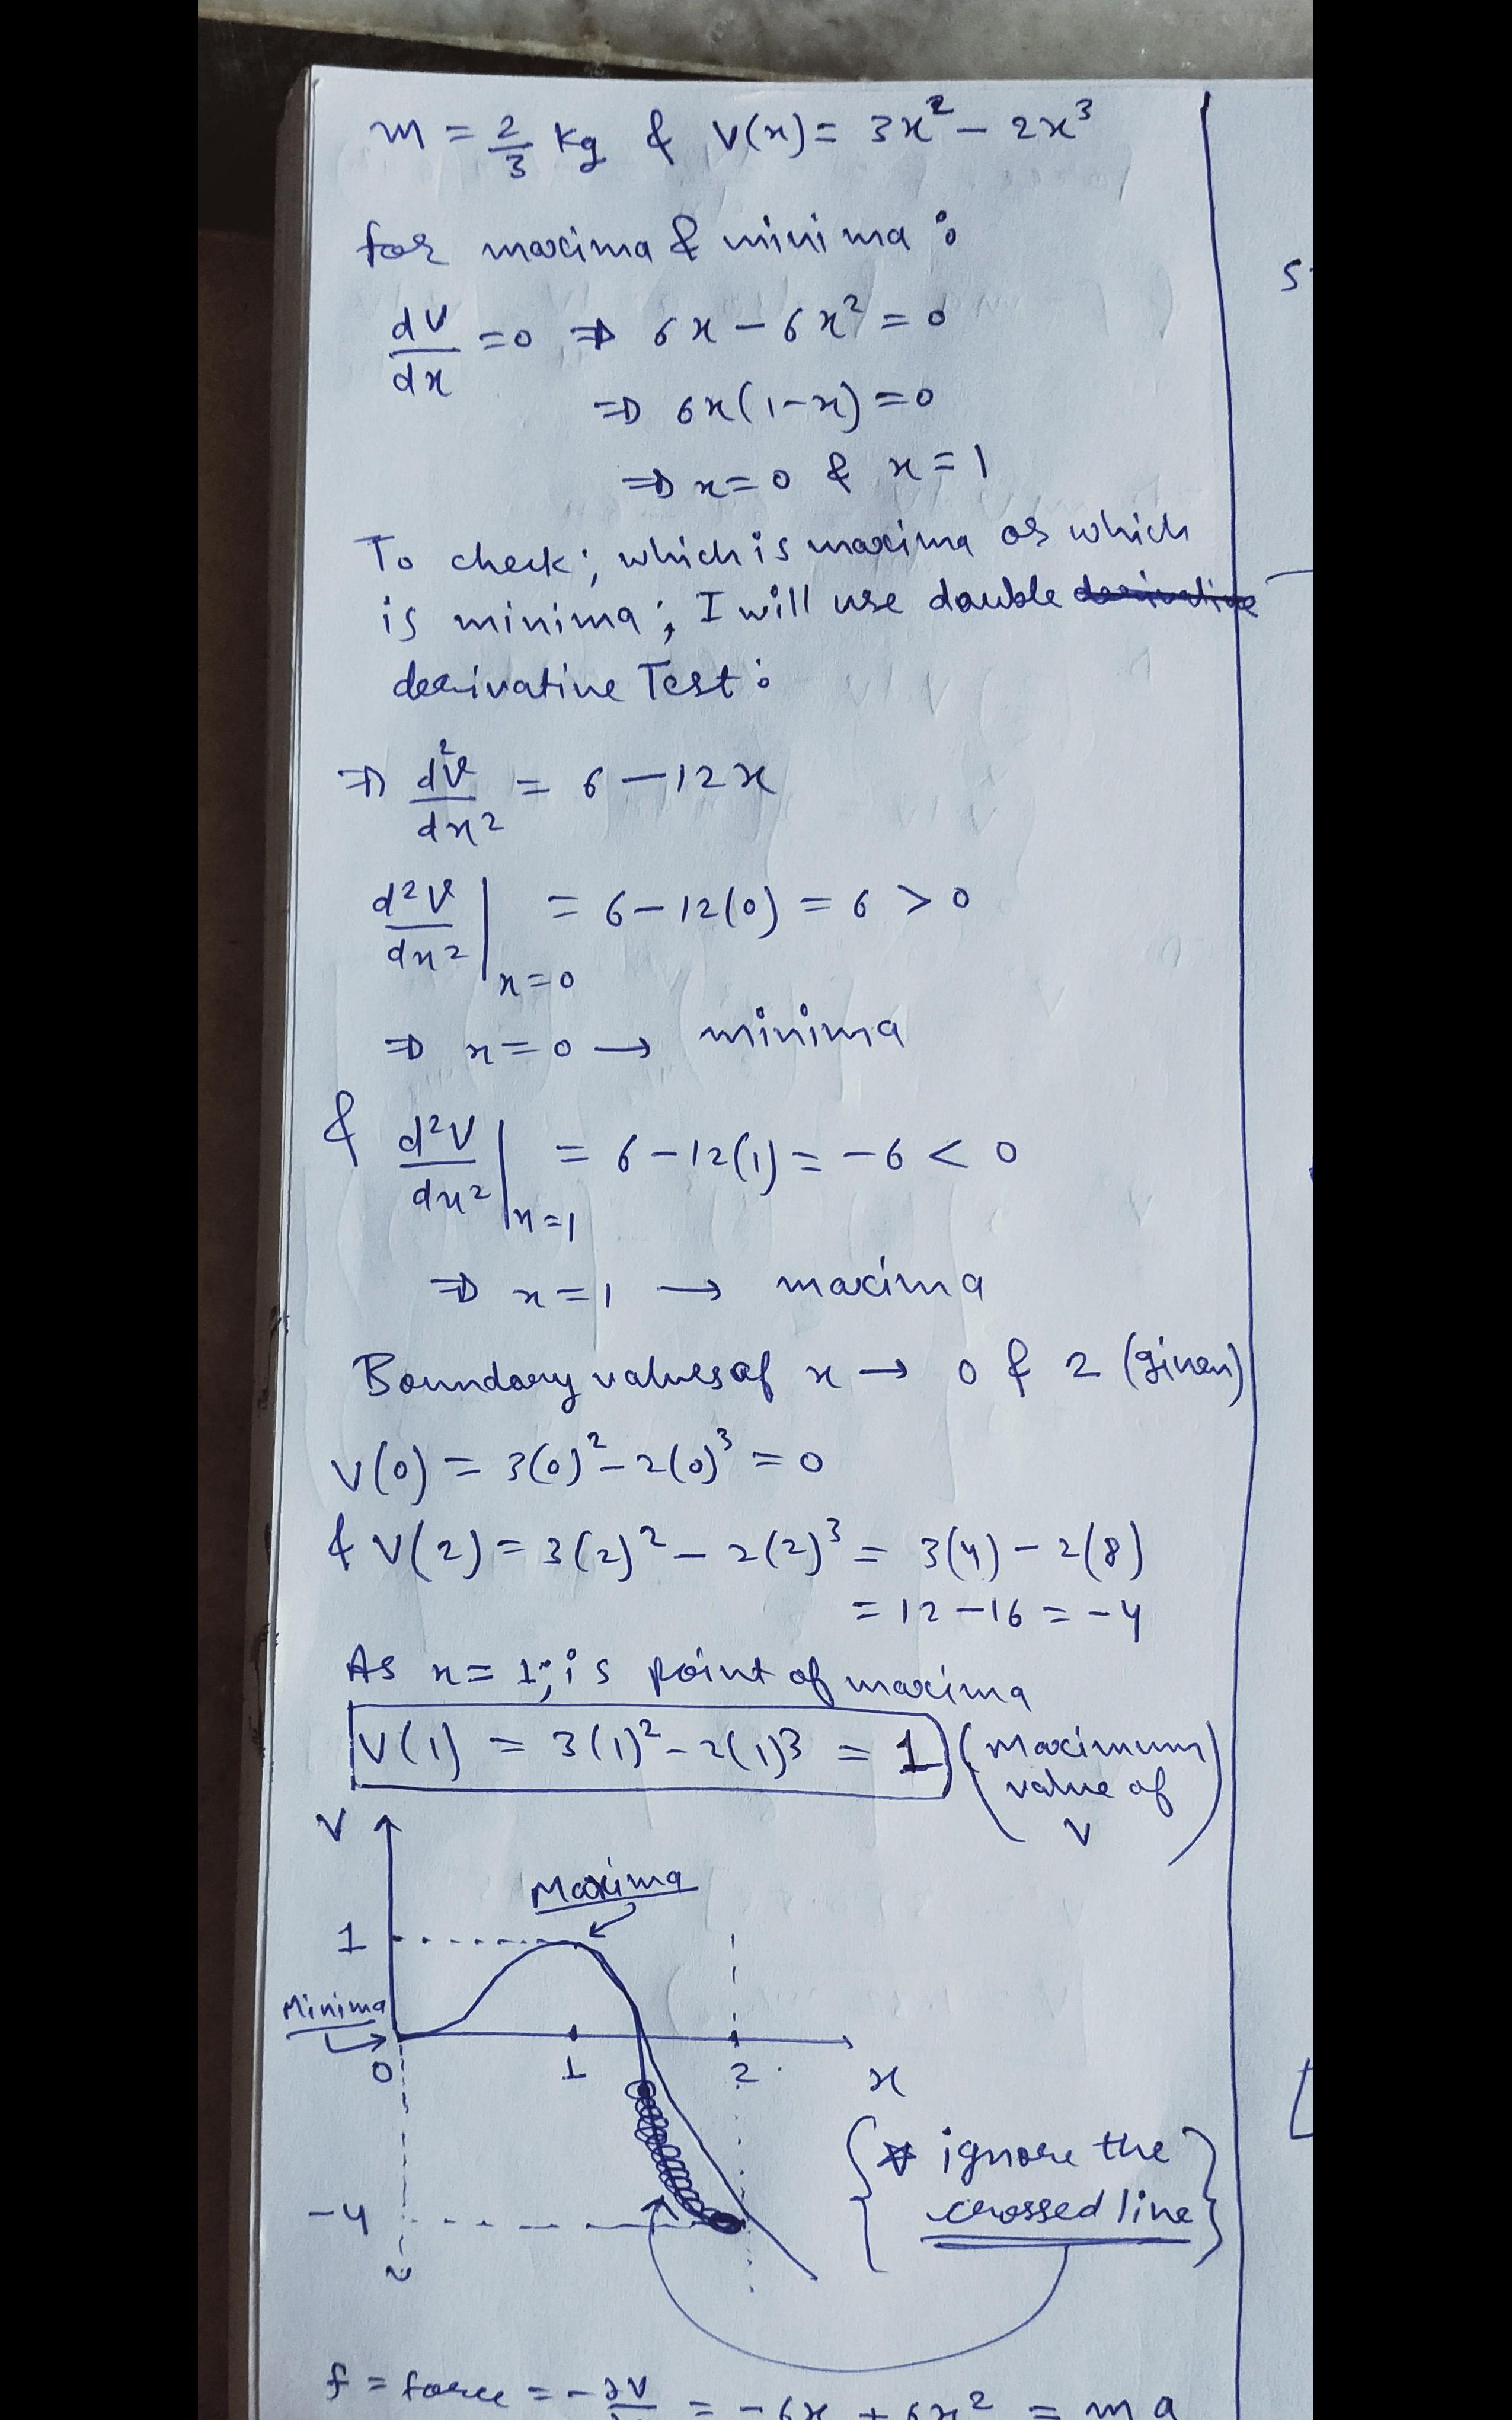 m = 2/3 kg & V(x) = 3x² - 2x³
for maxima & minima :
dV/dx = 0 ⇒ 6x - 6x² = 0
⇒ 6x(1-x) = 0
⇒ x = 0 & x = 1
To check; which is maxima or which
is minima; I will use double derivative
derivative Test :
⇒ d²V/dx² = 6 - 12x
d²V/dx² |x=0 = 6 - 12(0) = 6 > 0
⇒ x = 0 → minima
& d²V/dx² |x=1 = 6 - 12(1) = -6 < 0
⇒ x = 1 → maxima
Boundary values of x → 0 & 2 (given)
V(0) = 3(0)² - 2(0)³ = 0
& V(2) = 3(2)² - 2(2)³ = 3(4) - 2(8)
= 12 - 16 = -4
As x = 1; is point of maxima
V(1) = 3(1)² - 2(1)3 = 1 (maximum
value of
V)
V
Maxima
1
Minima
0 1 2 x
{* ignore the
crossed line}
-4
f = force = -∂V = -6x + 6x² = ma